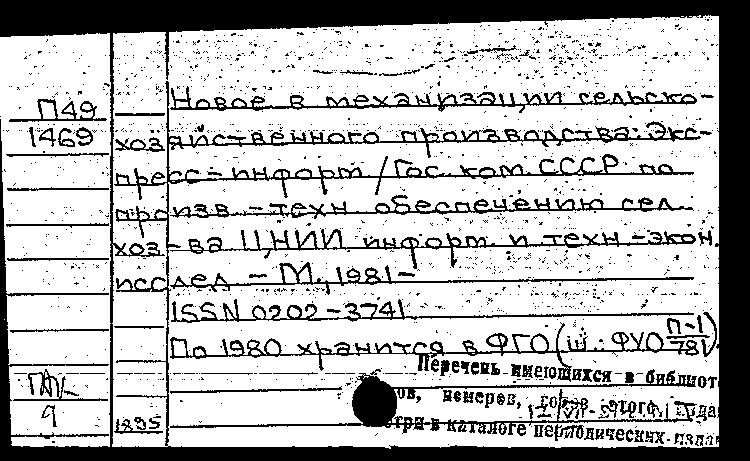 П49
1469
Новое в механизации сельско-
хозяйственного производства: Экс-
пресс-информ / Гос. ком. СССР по
произв.-техн. обеспечению сел.
хоз-ва ЦНИИ информ. и техн.-экон.
исслед. - М., 1981-
ISSN 0202-3741
По 1980 хранится в ФГО (ш. ФУО П-1/781)
Перечень имеющихся в библиот
ов, номеров, годов этого изда
стри в каталоге периодических изда
9
1895